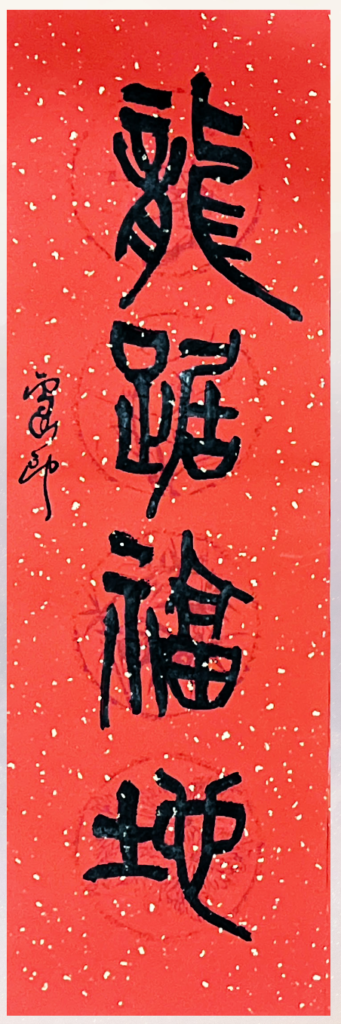 龍踞福地